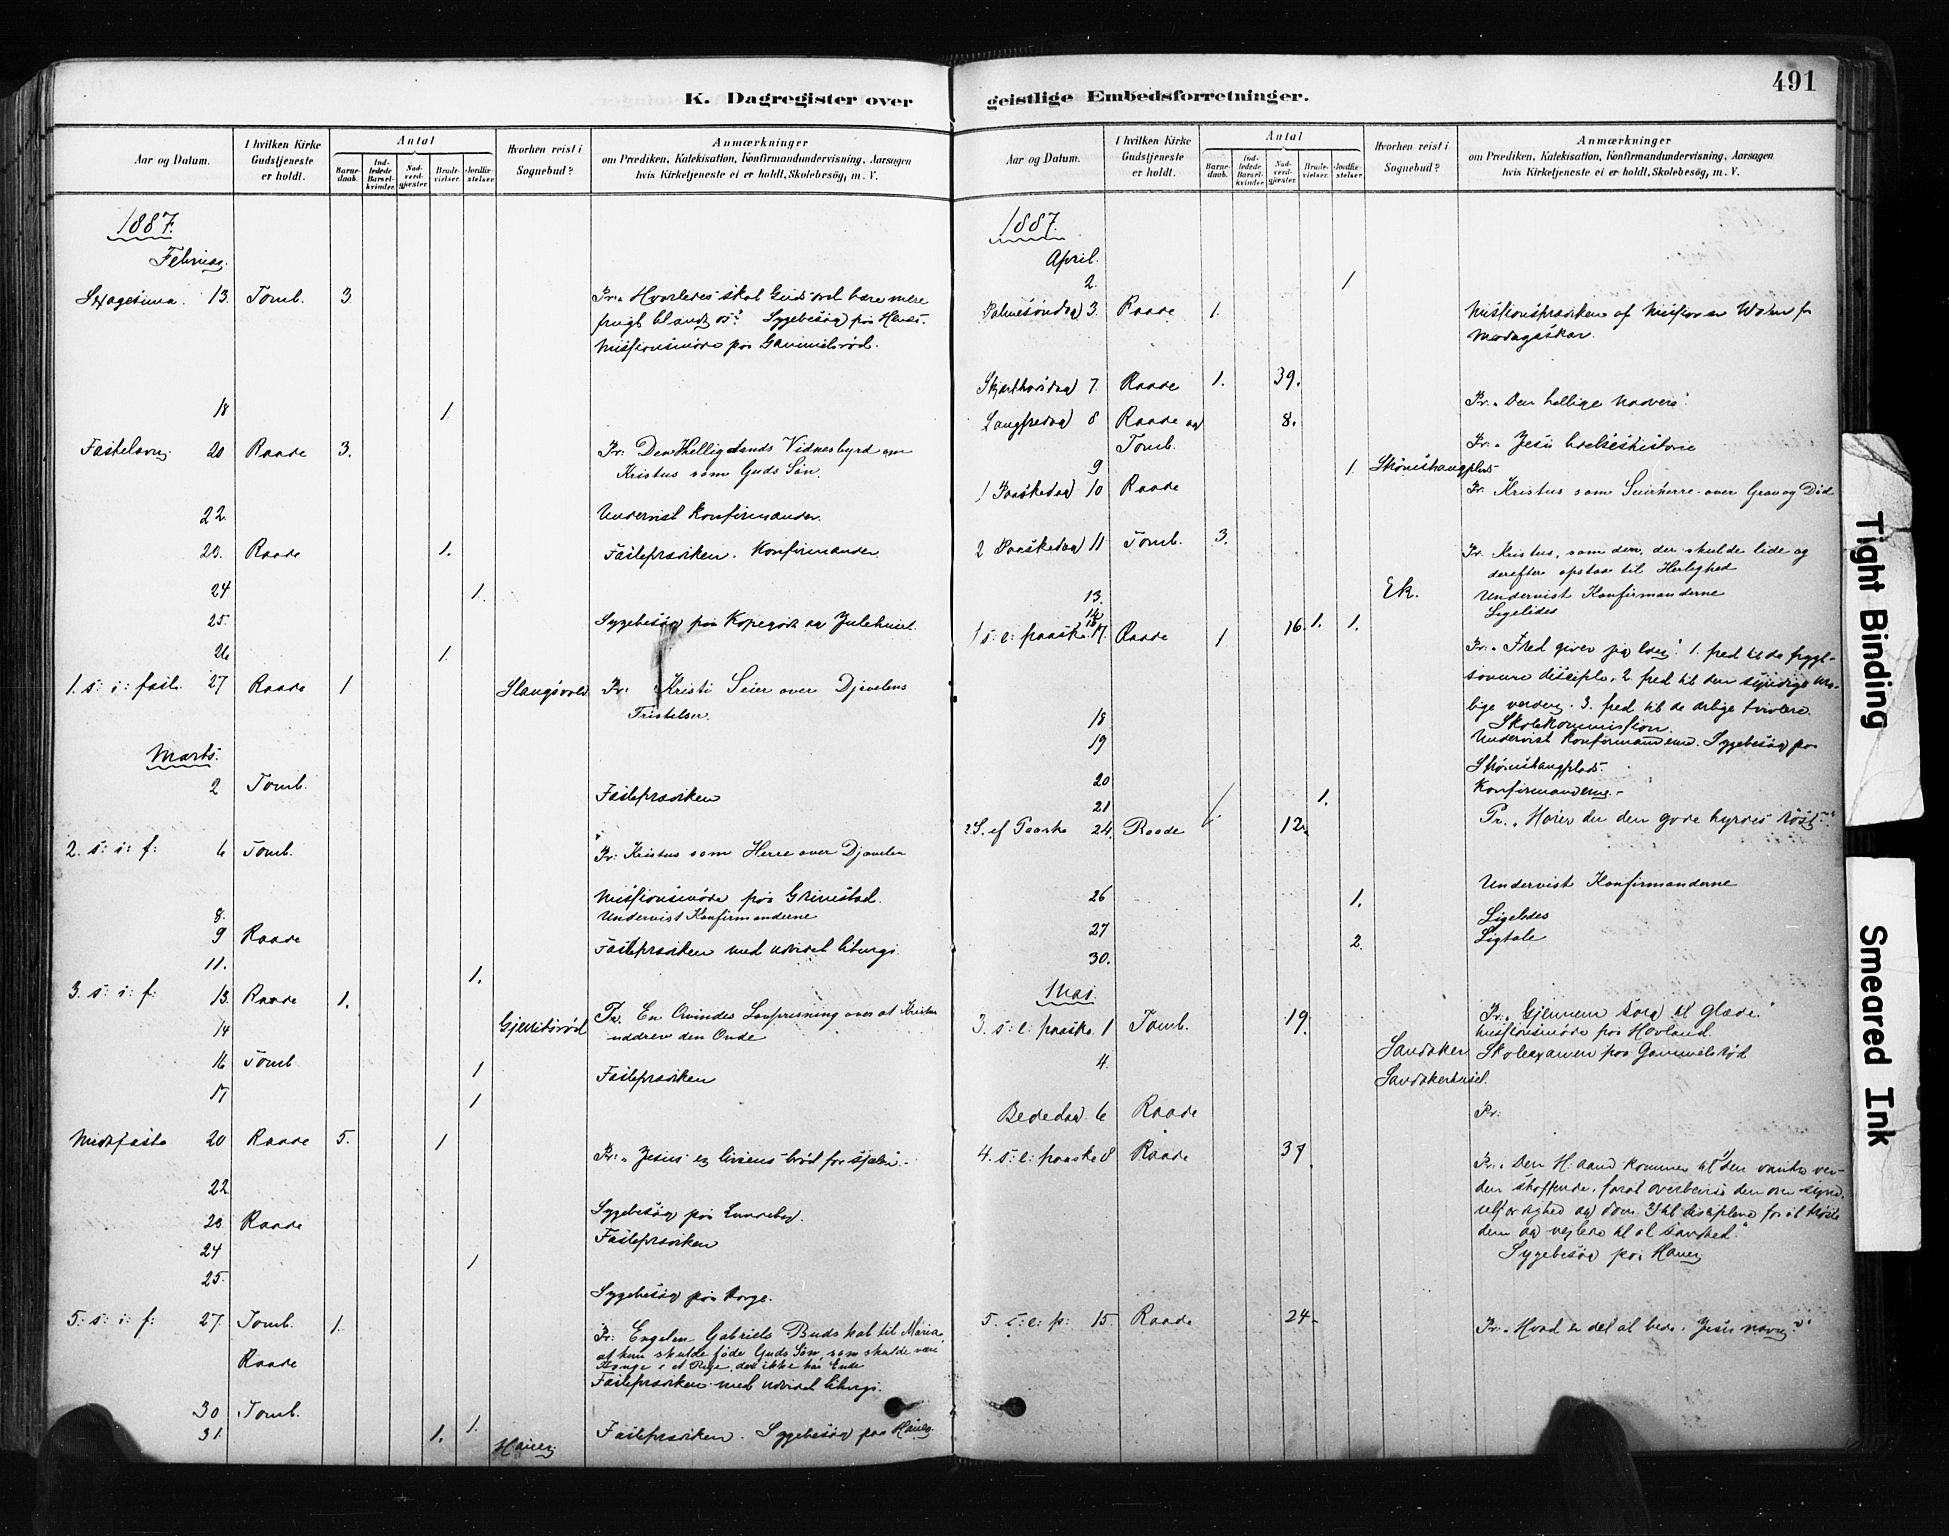 K. Dagregister over
Aar og Datum.
I hvilken Kirke Gudstjeneste er holdt.
Antal
Barnedaab.
Indledede Barselkvinder.
Nadverdgjester.
Brudevielser.
Jordfæstelser.
Hvorhen reist i Sognebud?
Anmærkninger
om Prædiken, Katekisation, Konfirmandundervisning, Aarsagen
hvis Kirketjeneste ei er holdt, Skolebesøg, m. V.
1887.
Februar.
Sexagesima. 13. Tomb. 3. Pr. „Hvorledes skal Guds ord bære mere
frugt blandt os? Sygebesøg paa
Missionsmøde paa Gammelsrød.
18 1.
Fastelavn 20 Raade 3. Pr: Den Helligaands Vidnesbyrd om
Kristus som Guds Søn.
22. Undervist Konfirmander.
23. Raade 1. Fasteprædiken. Konfirmander
24 1.
25. Sygebesøg paa Kopegød og Julehuset.
26 1.
1. s: i: fast. 27 Raade 1 Slangsvold Pr: Kristi Seier over Djævelens
Fristelser.
Marts.
2 Tomb. Fasteprædiken
2. s: i: f: 6 Tomb. Pr: Kristus som Herre over Djævelen
Missionsmøde paa Grimstad.
8. Undervist Konfirmanderne
9 Raade Fasteprædiken med udvidet liturgi.
11. 1.
3. s: i: f: 13. Raade 1. Pr. En Qvindes Lovprisning over at Kristus
14 uddrev den Onde
16 Tomb 1 Fasteprædiken
17 1
Midtfaste 20 Raade 5. 1 Pr: „Jesus er livsens brød for sjælen.
22 Sygebesøg paa
23. Raade Fasteprædiken
24 1
25. Sygebesøg paa Borge.
5. s: i: f: 27. Tomb. 1. Pr: Engelen Gabriels Budskab til Maria,
at hun skulde føde Guds Søn, som skulde være
Konge i et Rige, der ikke har Ende
Raade Fasteprædiken med udvidet liturgi.
30 Tomb. 1.
31. 1. Hauer Fasteprædiken. Sygebesøg paa Hauer.
geistlige Embedsforretninger.
491
Aar og Datum.
I hvilken Kirke Gudstjeneste er holdt.
Antal
Barnedaab.
Indledede Barselkvinder.
Nadverdgjester.
Brudevielser.
Jordfæstelser.
Hvorhen reist i Sognebud?
Anmærkninger
om Prædiken, Katekisation, Konfirmandundervisning, Aarsagen
hvis Kirketjeneste ei er holdt, Skolebesøg, m. V.
1887.
April.
2. 1
Palmesøndag 3. Raade 1. Missionsprædiken af Missionær
Madagaskar.
Skjærthorsdag 7 Raade 1. 39. Pr. „Den hellige Nadvere“.
Langfredag 8 Raade og 8. Pr. „Jesu lidelseshistorie
Tomb.
9 1. Skrønishaugplads
1 Paaskedag 10 Raade Pr. Kristus som Seierherre over Grav og Død
2 Paaskedag 11 Tomb. 3. Pr. Kristus, som den, der skulde lide og
derefter opstaa til Herlighed
13. Ek. Undervist Konfirmanderne
Ligeledes
1 s: e: paaske 17. Raade 1 16. 1. 1. Pr. „Fred giver jeg Eder“. 1. fred til de frygt-
somme disciple, 2 fred til den syndige
lige verden. 3. fred til de ærlige tvivlere.
18 Skolekommission
19 Undervist Konfirmanderne. Sygebesøg paa
Skrønishaugplads.
20 Konfirmanderne.
21 1.
2 S. ef Paaske 24. Raade 12. Pr. „Hører du den gode hyrdes røst“?
26 1. Undervist Konfirmanderne
27 Ligeledes
30. 2. Ligtale
Mai.
3. s: e: paaske 1 Tomb. 19. Pr. „Gjennem sorg til Glæde.“
Missionsmøde paa Hovland.
4. Sandaker Skoleexamen paa Gammelsrød
Sandakerhuset.
Bededag. 6 Raade Pr:
4. s: e: paaske 8 Raade 37. Pr. „Den H: aand kommer til den vantro ver-
den straffende, forat overbevise den om synd,
retfærdighed og dom til disciplene for at trøste
dem og veilede til al sandhed“.
Sygebesøg paa Hauer
5. s: e: p: 15. Raade 24. Pr. „Hvad er det at bede i Jesu navn?“
Tight Binding
Smeared Ink